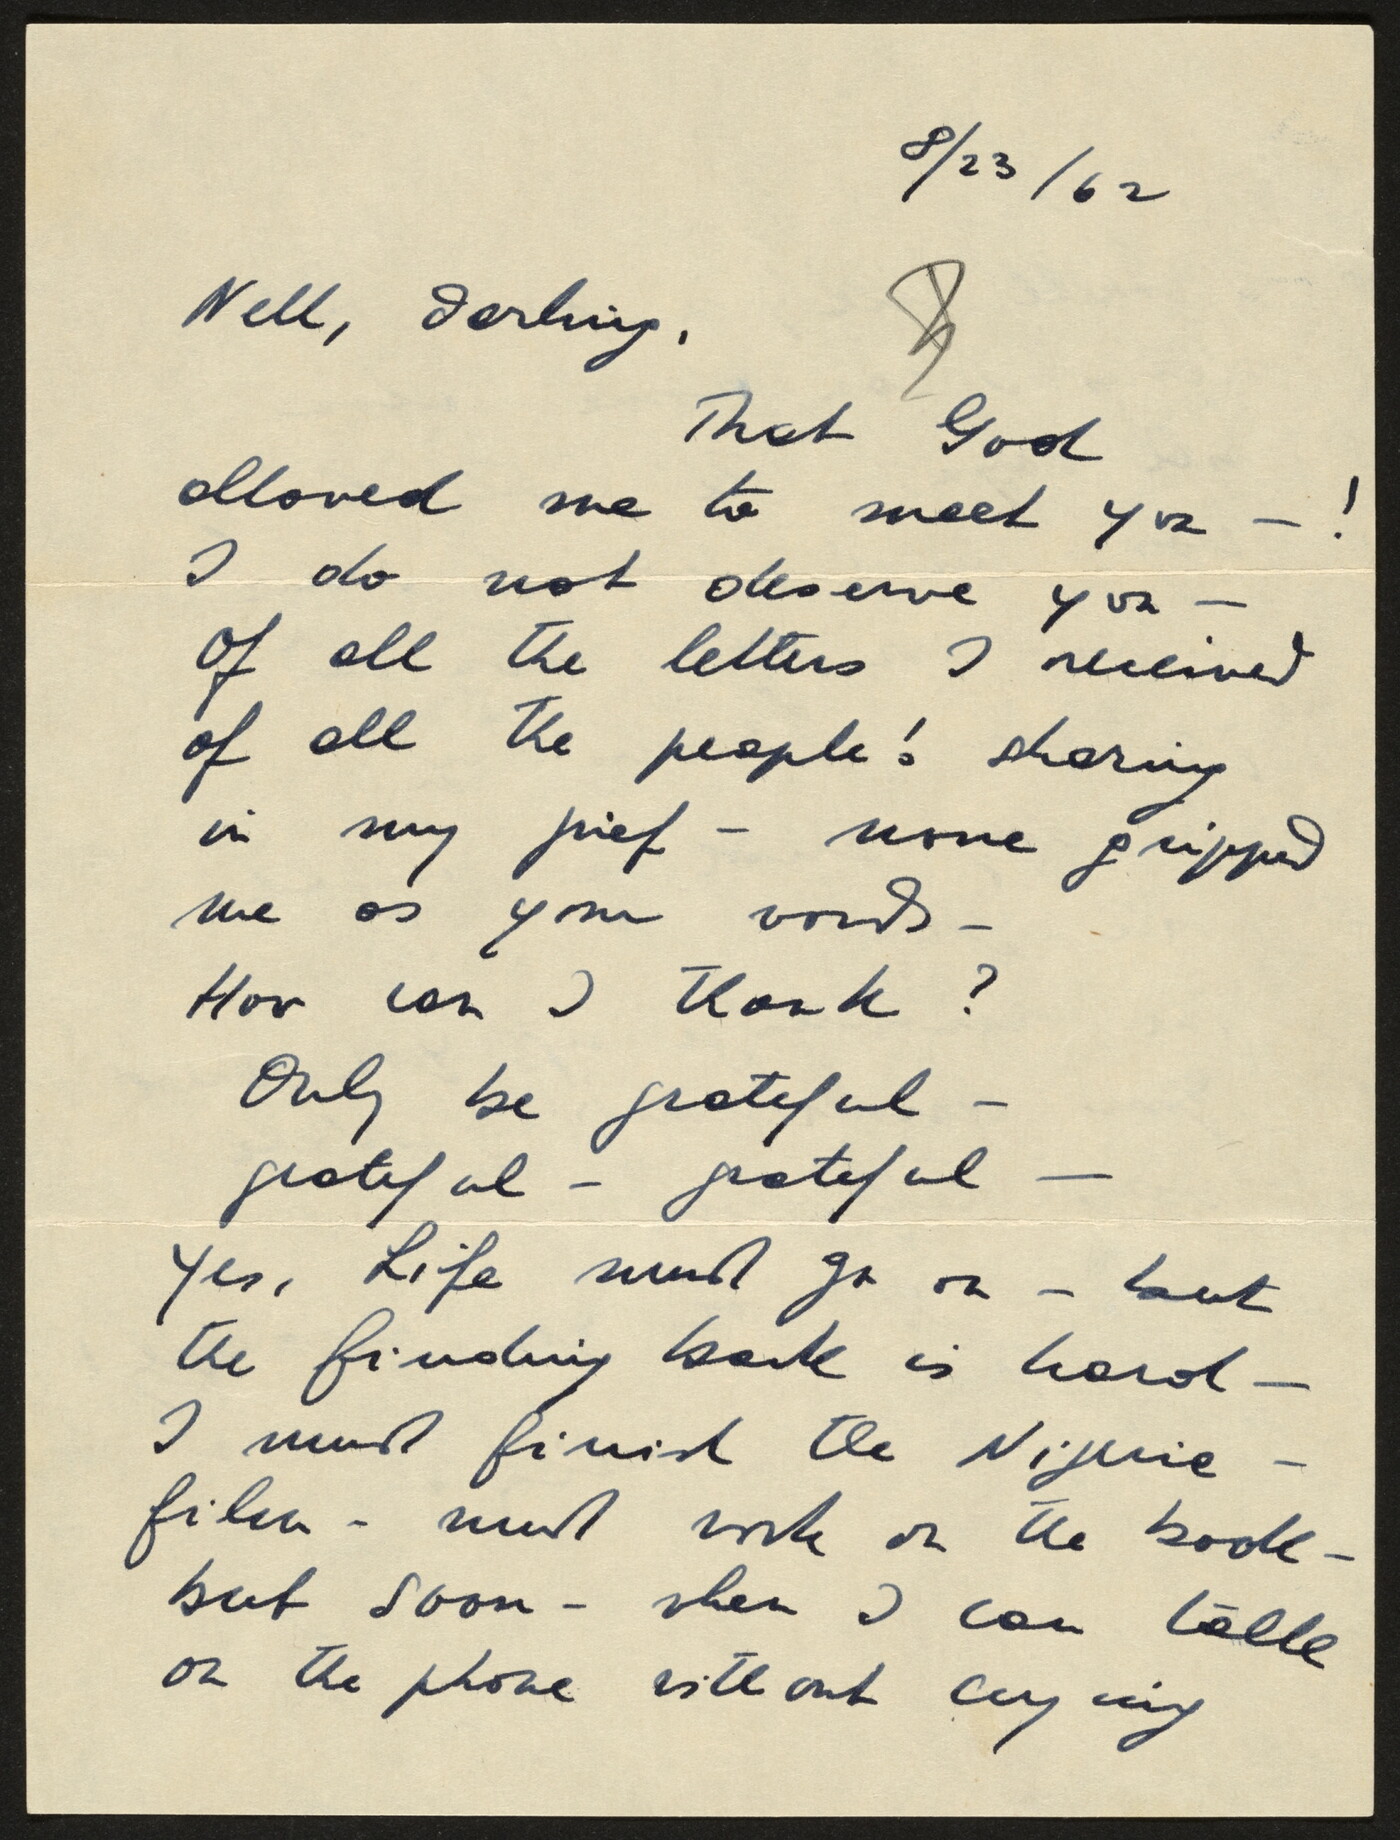 8/23/62
Nell, darling,
That God
allowed me to meet you - !
I do not deserve you -
Of all the letters I received
of all the people! sharing
in my grief - none gripped
me as your words -
How can I thank ?
Only be grateful -
grateful - grateful -
Yes, Life must go on - but
the finding back is hard -
I must finish the Nigerie -
film - must work on the book -
but soon - when I can talk
on the phone without crying